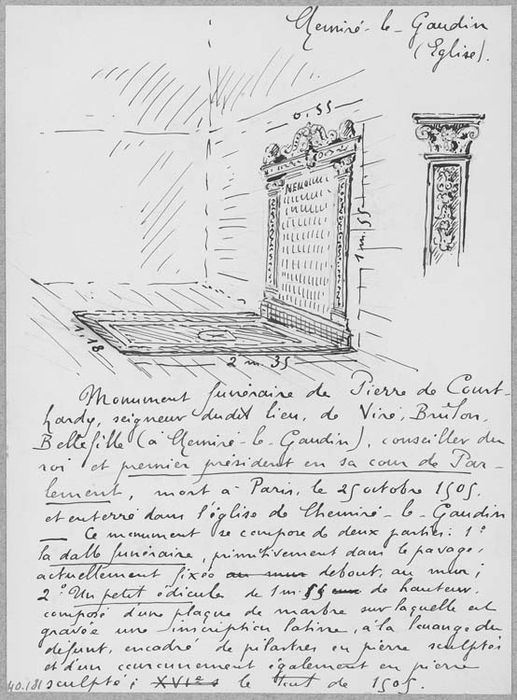 Chemiré-le-Gaudin
(Eglise).
0,55
MEMORIAE
1m.55
1.18
2m.35
Monument funéraire de Pierre de Court-
hardy, seigneur dudit lieu, de Viré, Brûlon,
Bellefille (à Chemiré-le-Gaudin), conseiller du
roi et premier président en sa cour de Par-
lement, mort à Paris, le 25 octobre 1505,
et enterré dans l'église de Chemiré-le-Gaudin
— Ce monument se compose de deux parties: 1°
la dalle funéraire, primitivement dans le pavage,
actuellement fixée au mur debout, au mur;
2° Un petit édicule de 1m.55 de hauteur,
composé d'une plaque de marbre sur laquelle est
gravée une inscription latine, à la louange du
défunt, encadré de pilastres en pierre sculptés
et d'un couronnement également en pierre
sculpté; XVIe s le tout de 1505.
40.181